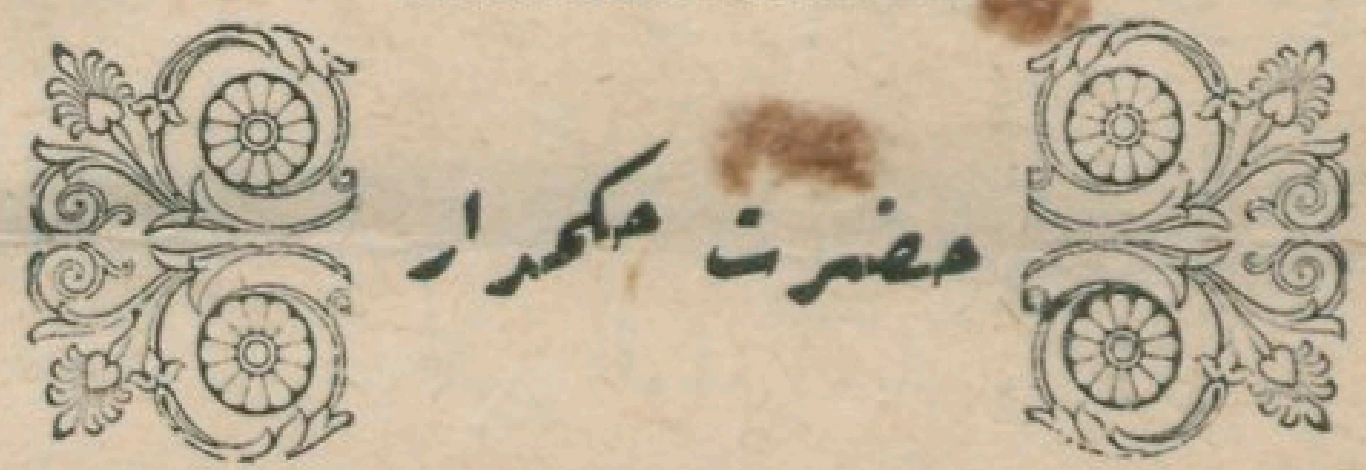 حضرت حكمدار